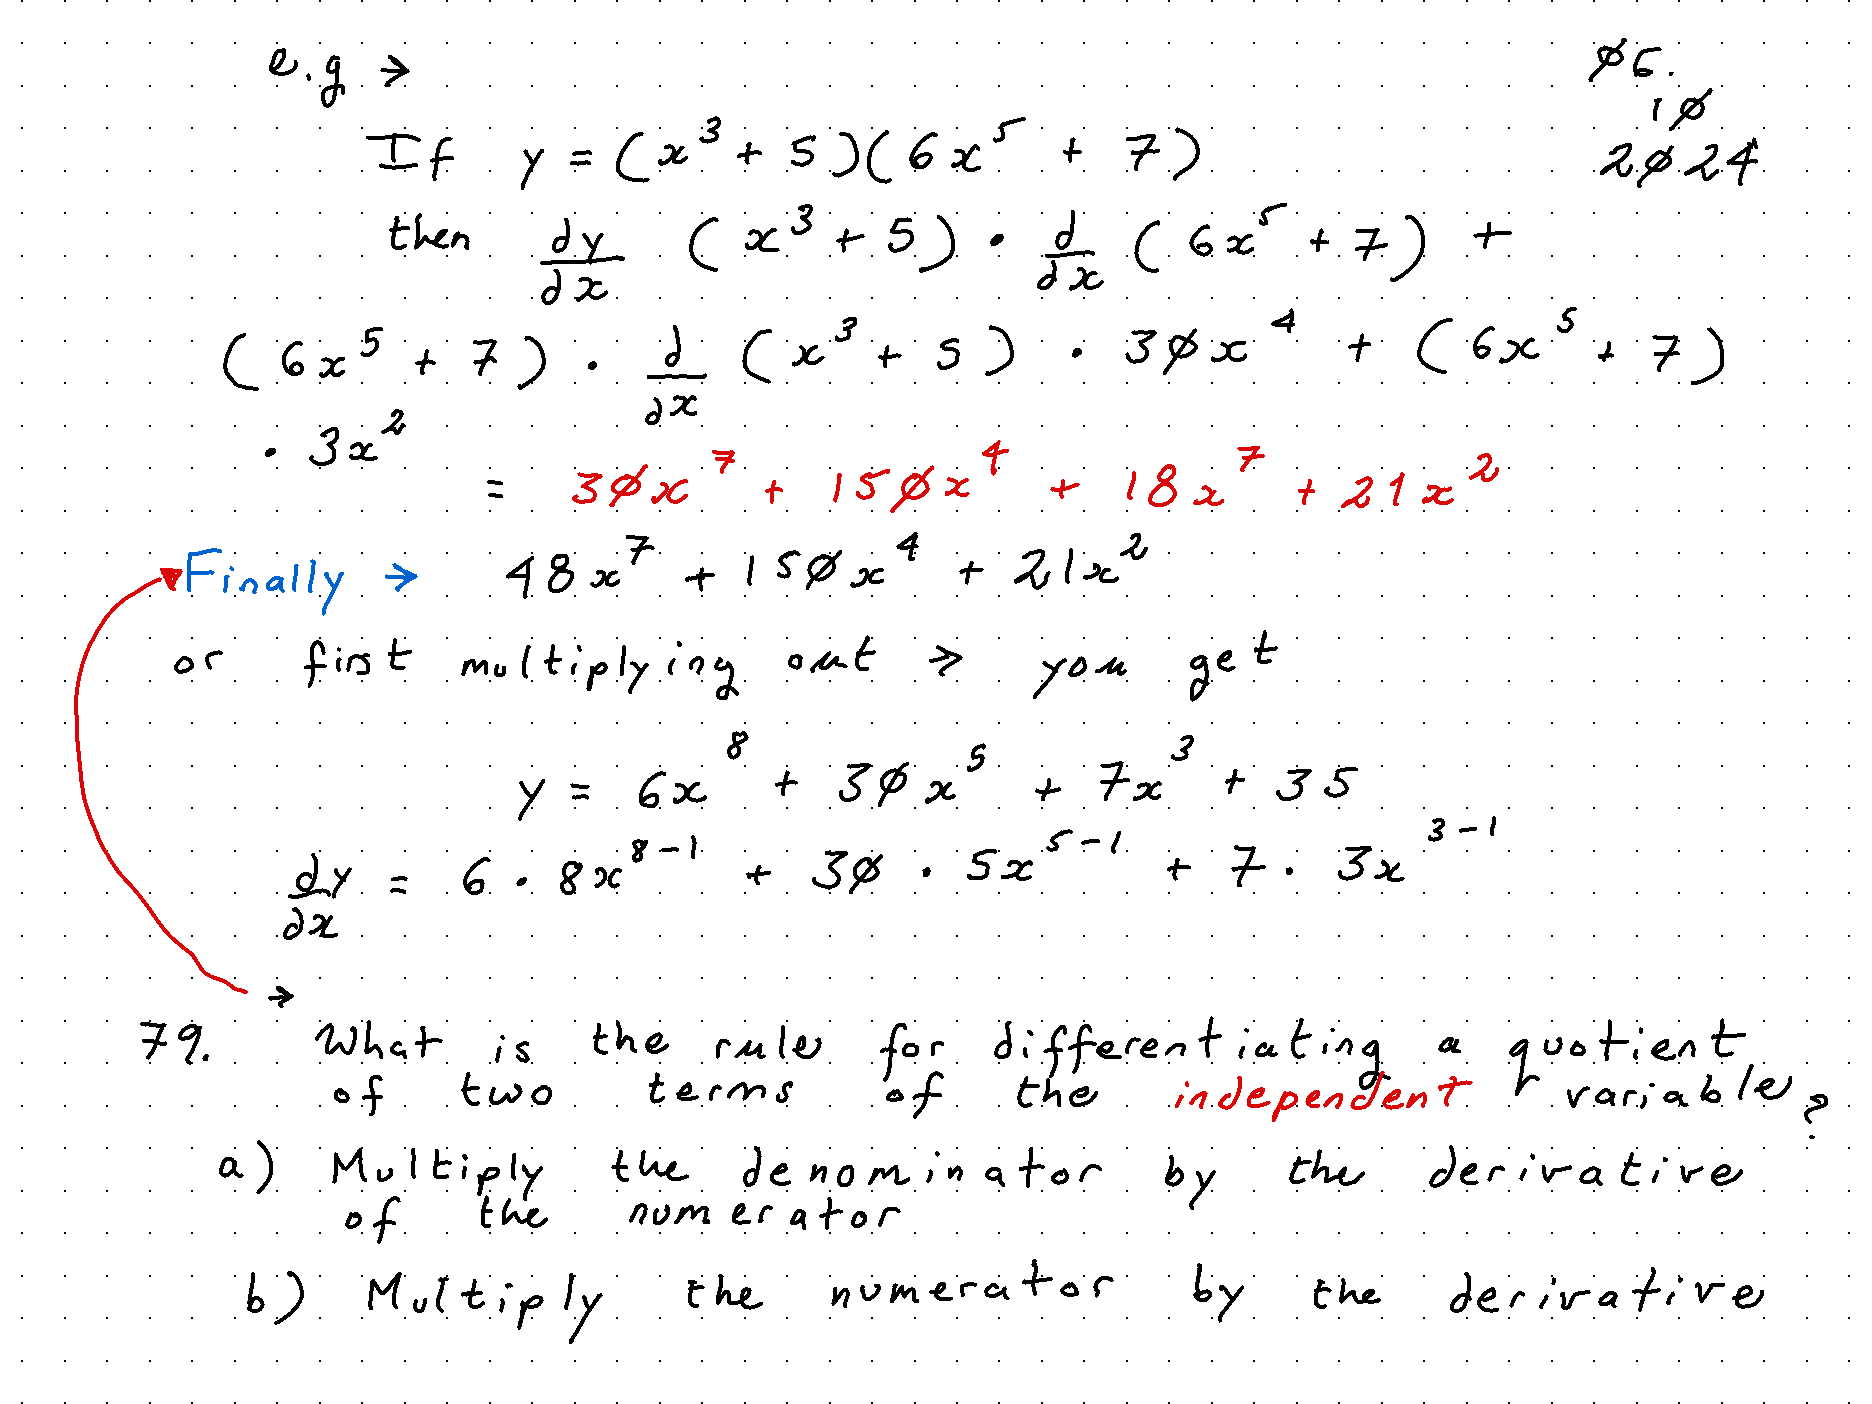 e.g →
Ø6.
1Ø
2Ø24
If y = (x³ + 5)(6x⁵ + 7)
then dy/dx (x³ + 5) • d/dx (6x⁵ + 7) +
(6x⁵ + 7) • d/dx (x³ + 5) • 3Øx⁴ + (6x⁵ + 7)
• 3x²
= 3Øx⁷ + 15Øx⁴ + 18x⁷ + 21x²
Finally → 48x⁷ + 15Øx⁴ + 21x²
or first multiplying out → you get
y = 6x⁸ + 3Øx⁵ + 7x³ + 35
dy/dx = 6 • 8x⁸⁻¹ + 3Ø • 5x⁵⁻¹ + 7 • 3x³⁻¹
→
79. What is the rule for differentiating a quotient
of two terms of the independent variable?
a) Multiply the denominator by the derivative
of the numerator
b) Multiply the numerator by the derivative